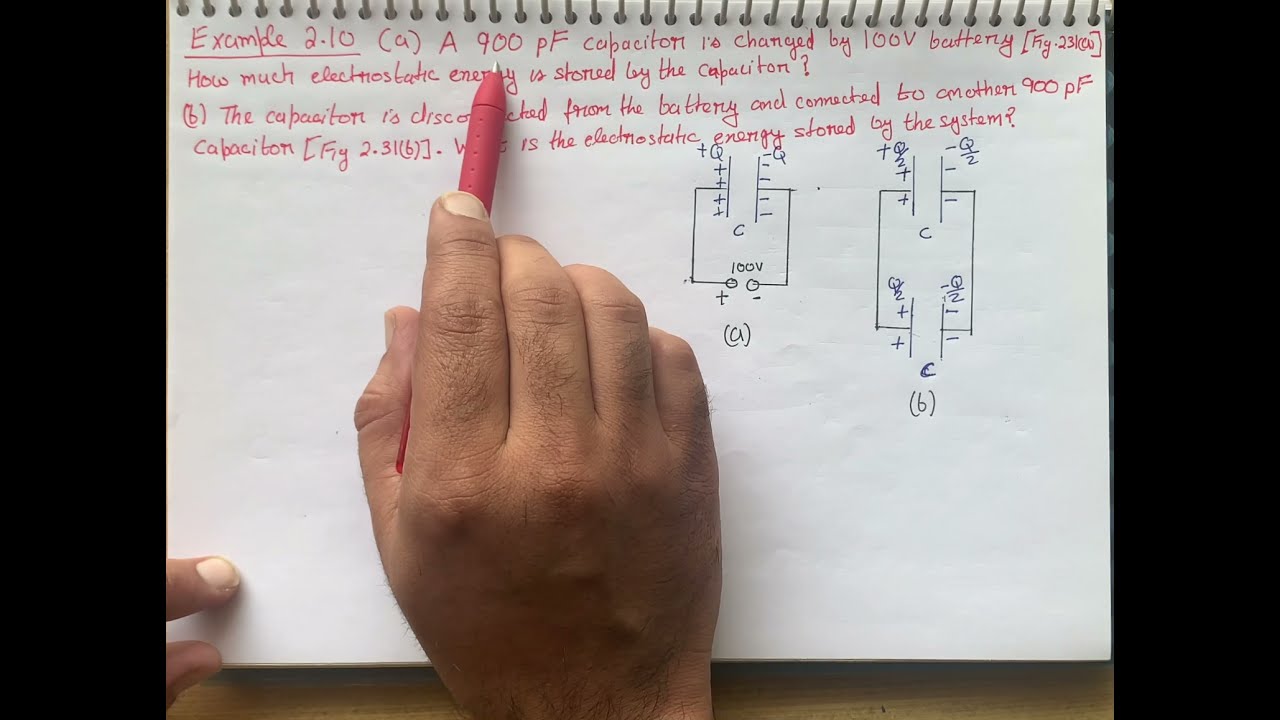 Example 2.10 (a) A 900 pF capacitor is charged by 100V battery [Fig. 2.31(a)]
How much electrostatic energy is stored by the capacitor?
(b) The capacitor is disco cted from the battery and connected to another 900 pF
Capacitor [Fig 2.31(b)]. is the electrostatic energy stored by the system?
+Q -Q
+ -
+ -
+ -
+ -
C
100V
+ -
(a)
+Q/2 -Q/2
+ -
+ -
C
Q/2 -Q/2
+ -
+ -
C
(b)